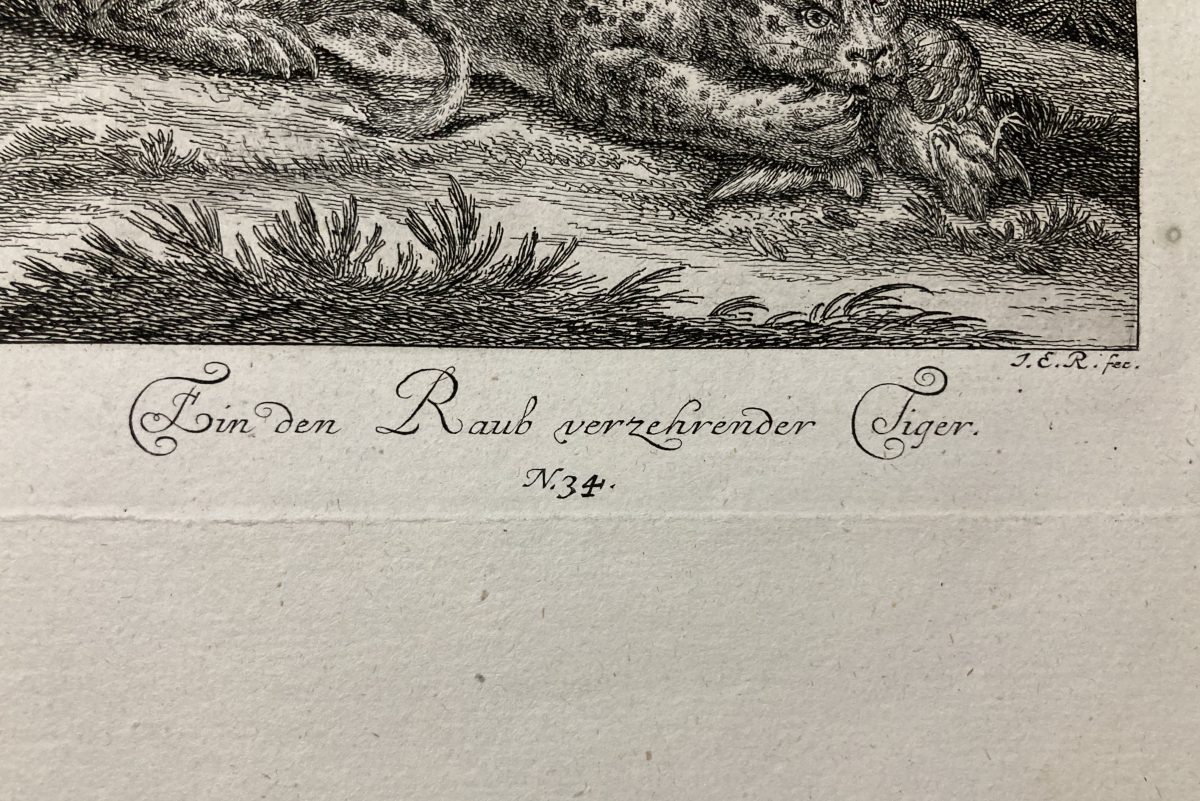 J. E. R. fec.
Ein den Raub verzehrender Tiger.
N. 34.